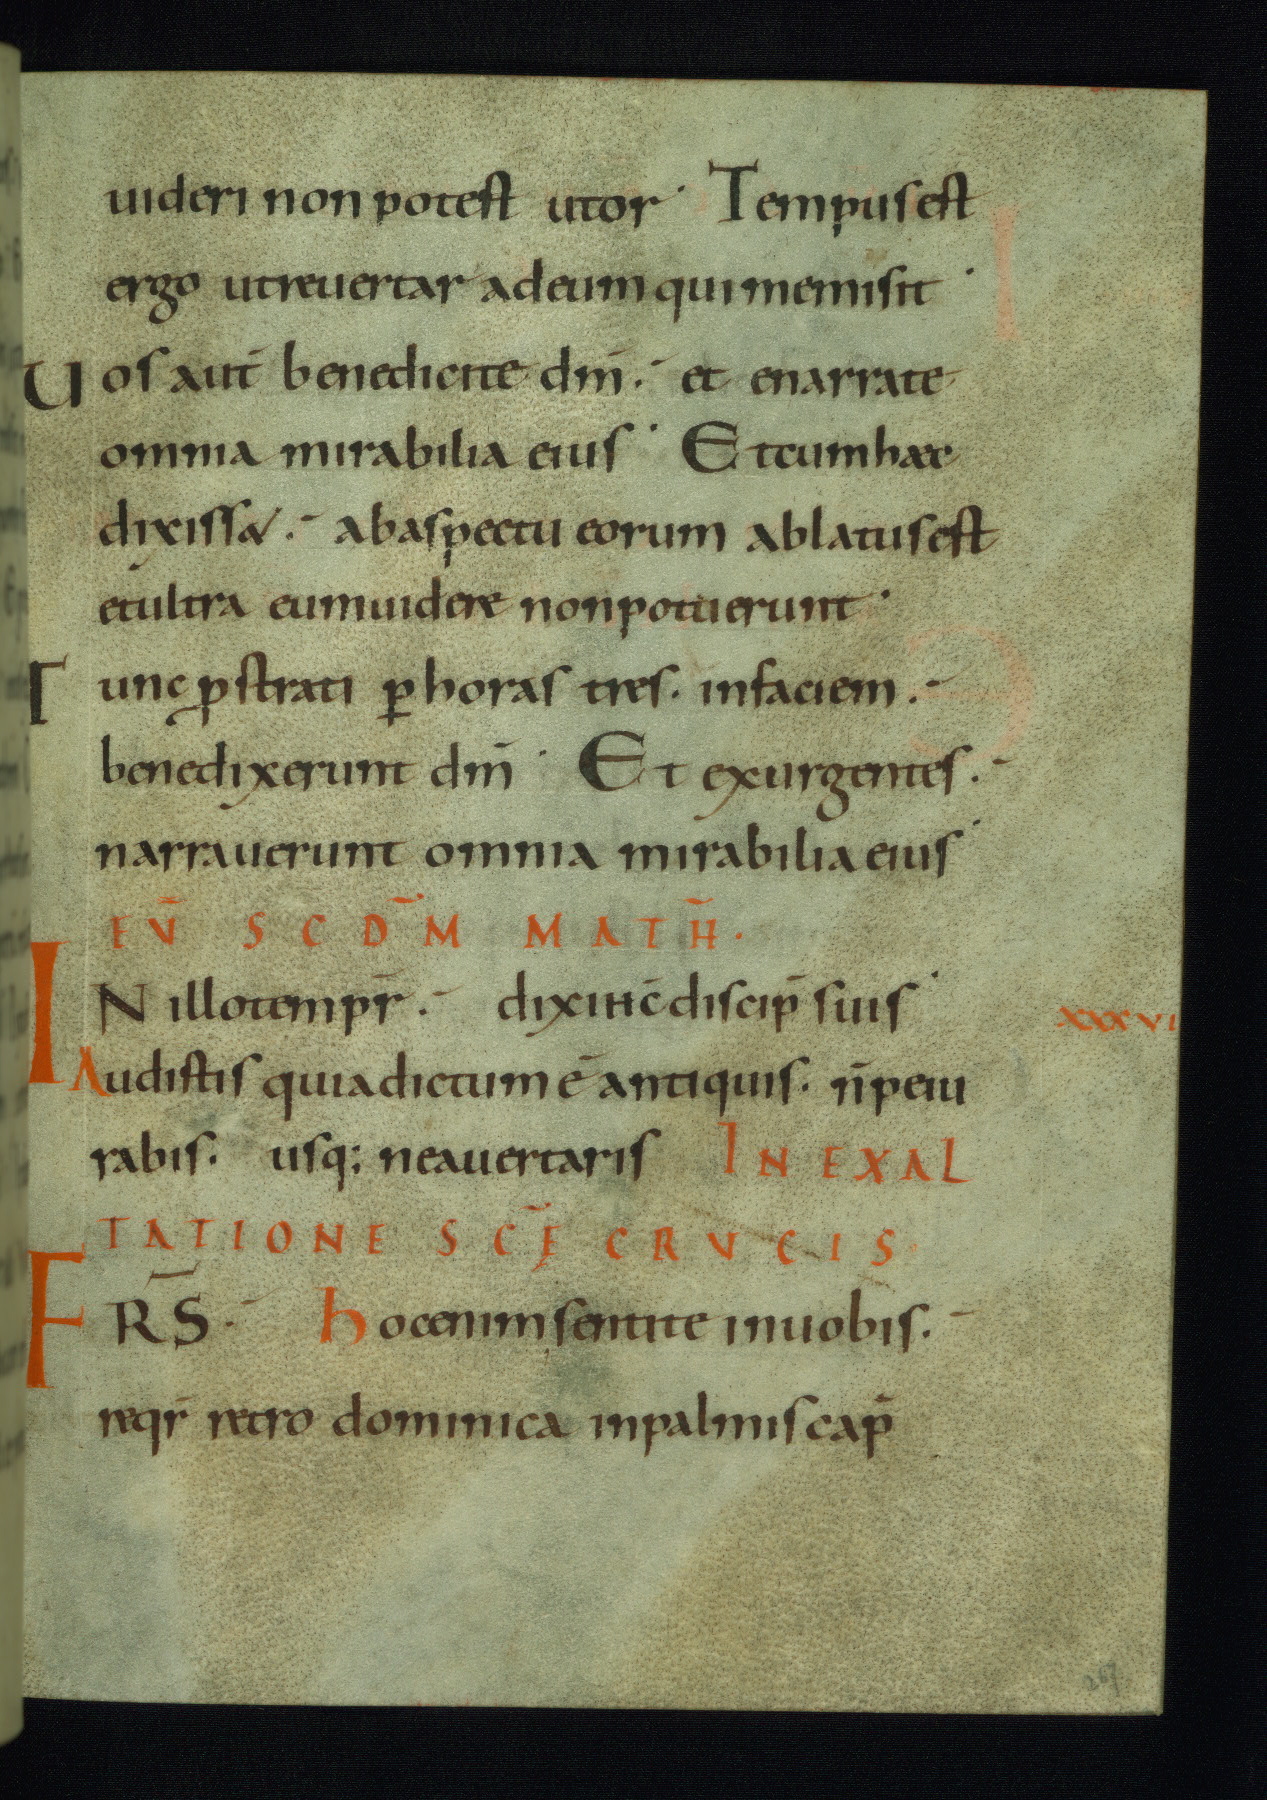 uideri non potest utor · Tempus est
ergo utreuertar adeum qui memisit ·
Uos aut̄ benedicite dm̄ . et enarrate
omnia mirabilia eius · Et cum haec
dixisset . ab aspectu eorum ablatus est
et ultra eum uidere non potuerunt ·
Tunc ꝓstrati ꝑ horas tres . in faciem .
benedixerunt dm̄ · Et exurgentes .
narrauerunt omnia mirabilia eius ·
EV̄ SCD̄M MATH̄ .
IN illo tempr̄ . dixit ih̄c discip̄ suis · XXXVI
Audistis quia dictum ē antiquis . n̄ peiu
rabis . usq; ne auertaris IN EXAL
TATIONE SC̄Ę CRUCIS
FR̄S . hoc enim sentite in uobis .
reqr̄ retro dominica in palmis cap̄
267